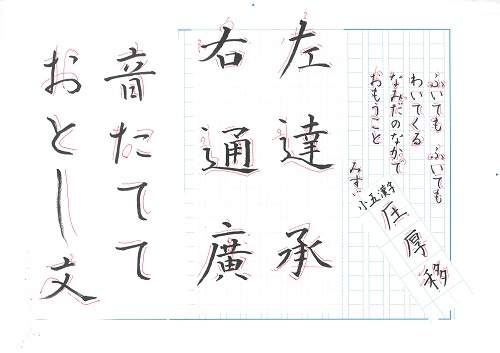 ふいても ふいても
わいてくる
なみだのなかで
おもうこと
みすゞ
小五漢字
圧厚移
左達承
右通廣
音たてて
おとし文